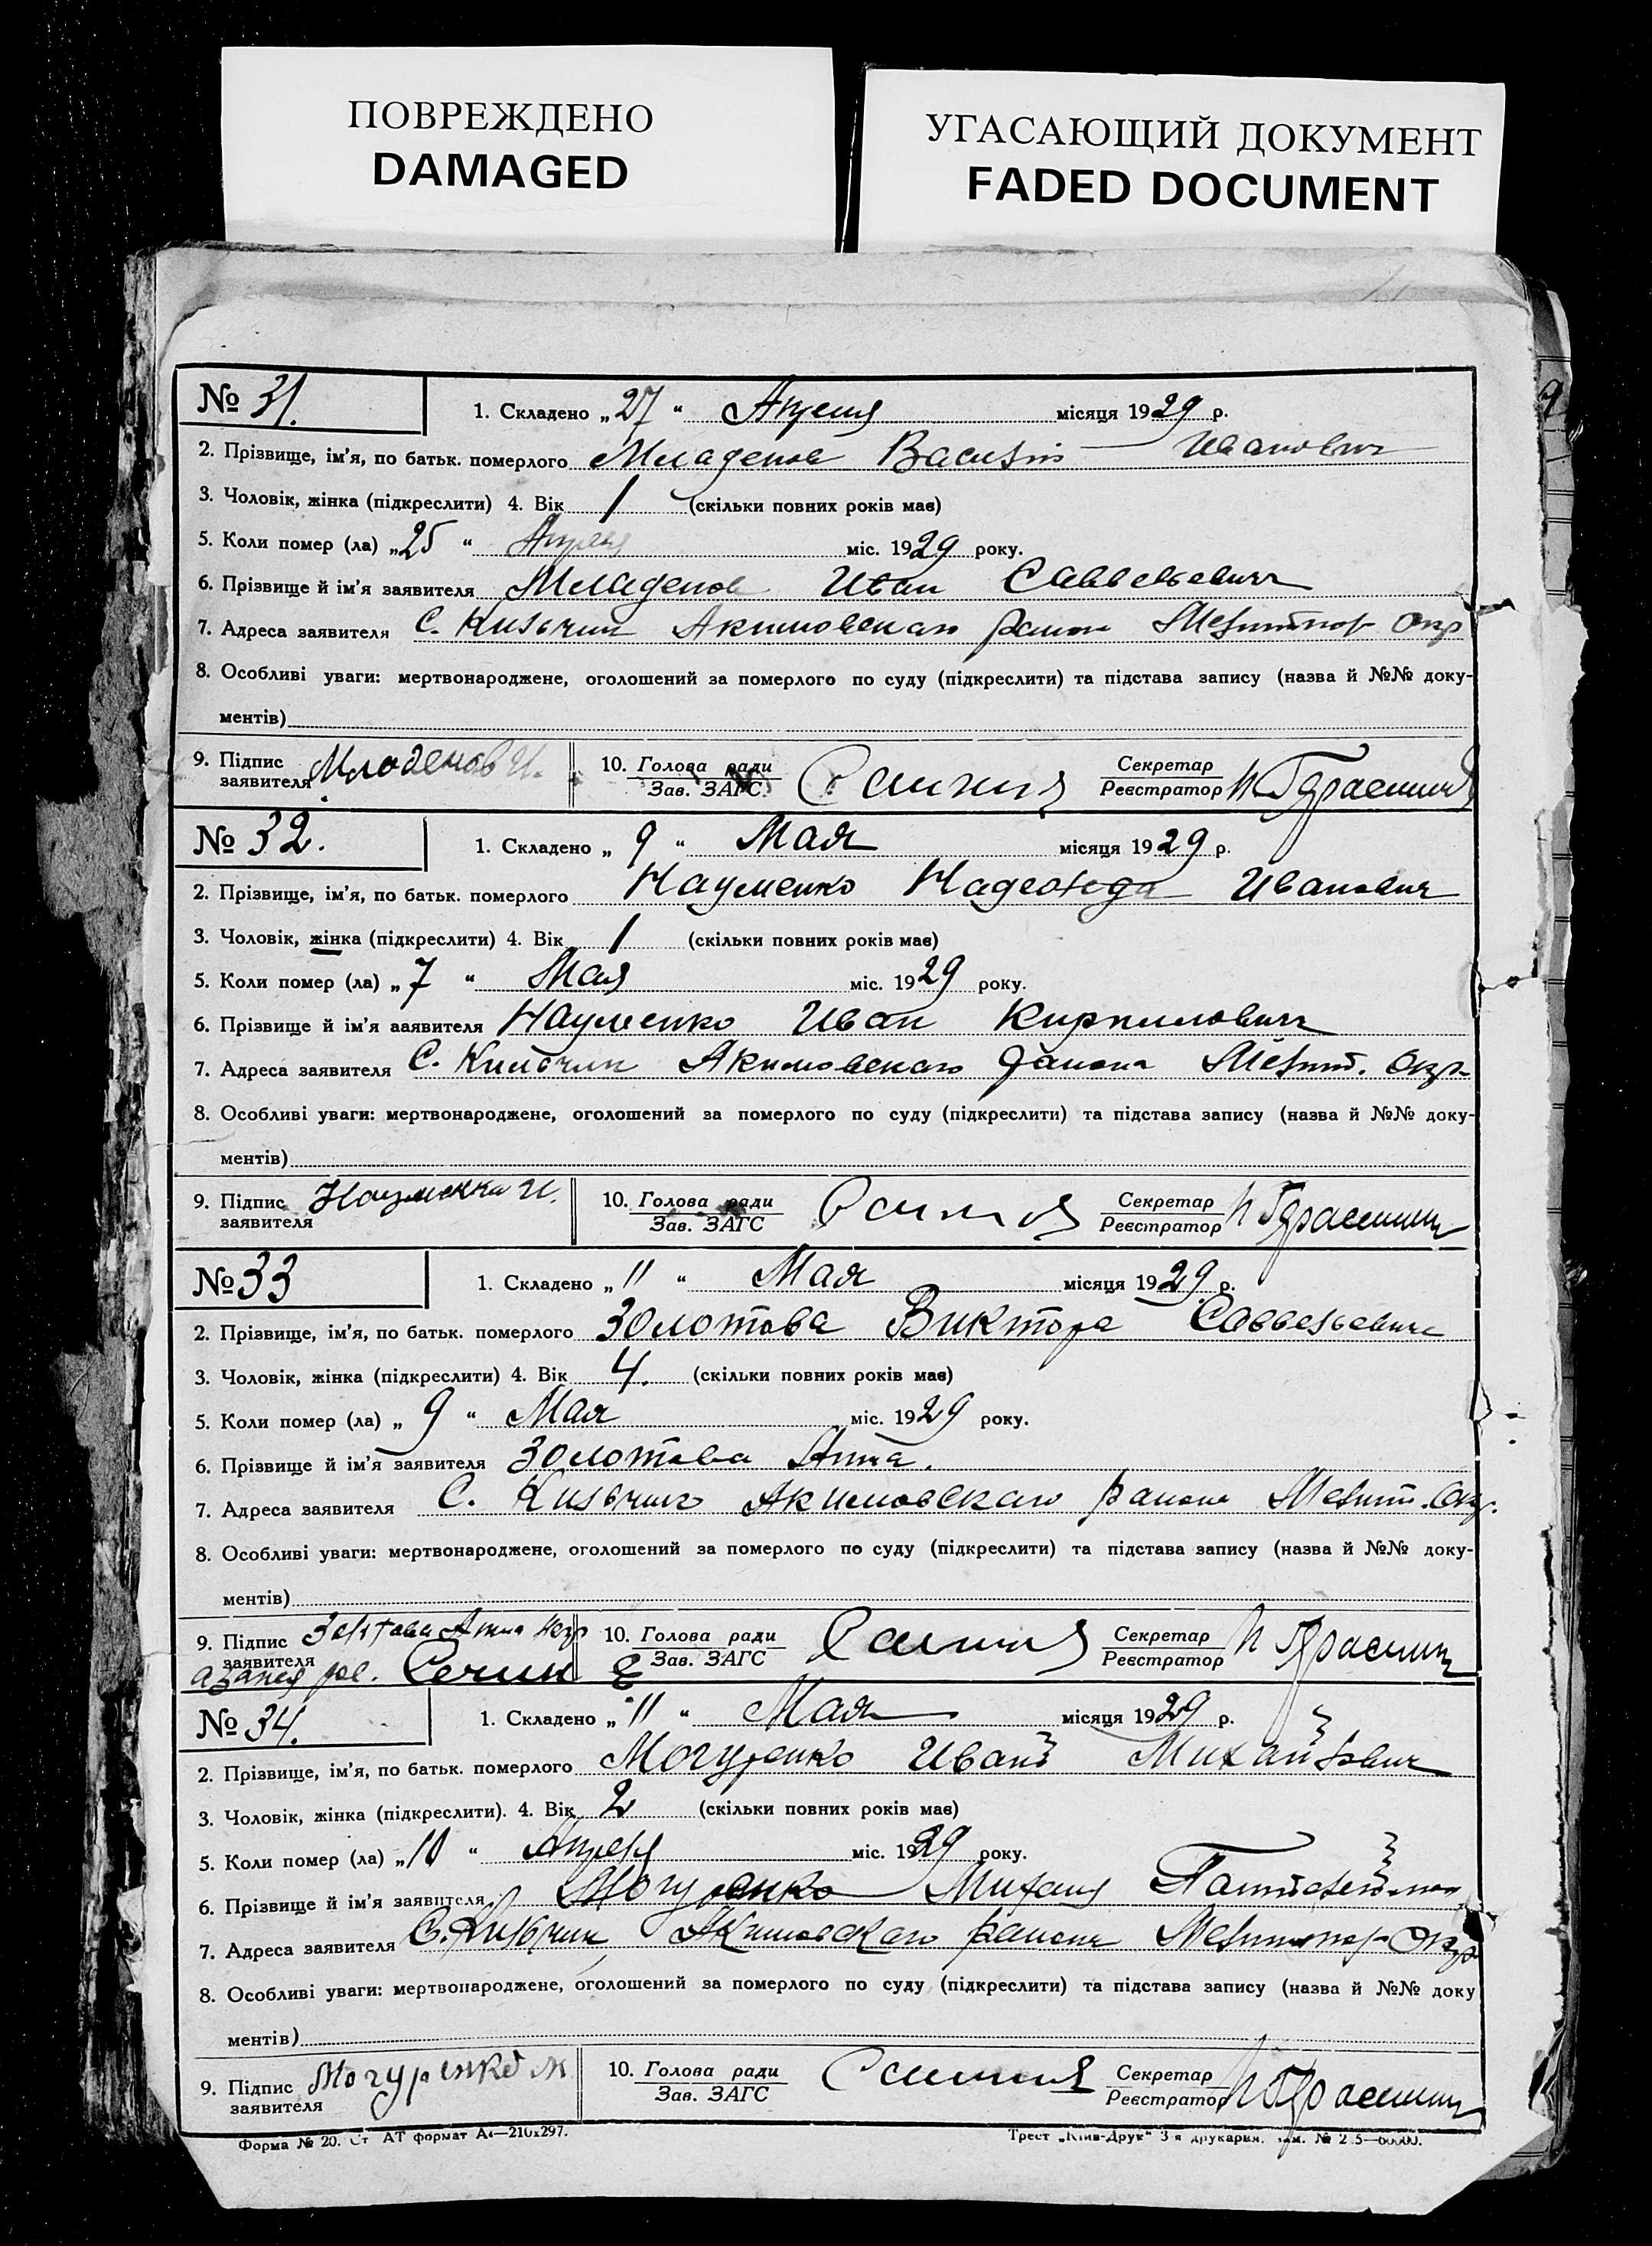 ПОВРЕЖДЕНО
DAMAGED
УГАСАЮЩИЙ ДОКУМЕНТ
FADED DOCUMENT
№ 31. 1. Складено „27“ Апреля місяця 1929 р.
2. Прізвище, ім'я, по батьк. померлого Младенов Василий Иванович
3. Чоловік, жінка (підкреслити) 4. Вік 1 (скільки повних років має)
5. Коли помер (ла) „25“ Апреля міс. 1929 року.
6. Прізвище й ім'я заявителя Младенов Иван Саввельевич
7. Адреса заявителя С. Кизьчик Акимовского района Мелитпол Окр
8. Особливі уваги: мертвонароджене, оголошений за померлого по суду (підкреслити) та підстава запису (назва й №№ доку-
ментів)
9. Підпис заявителя Младенов И. 10. Голова ради Зав. ЗАГС Секретар Реєстратор
№ 32. 1. Складено „9“ Мая місяця 1929 р.
2. Прізвище, ім'я, по батьк. померлого Науменко Надежда Иванович
3. Чоловік, жінка (підкреслити) 4. Вік 1 (скільки повних років має)
5. Коли помер (ла) „7“ Мая міс. 1929 року.
6. Прізвище й ім'я заявителя Науменко Иван Кирилович
7. Адреса заявителя С. Кизьчик Акимовского района Мелит. Окр.
8. Особливі уваги: мертвонароджене, оголошений за померлого по суду (підкреслити) та підстава запису (назва й №№ доку-
ментів)
9. Підпис заявителя Науменко И. 10. Голова ради Зав. ЗАГС Секретар Реєстратор
№ 33 1. Складено „11“ Мая місяця 1929 р.
2. Прізвище, ім'я, по батьк. померлого Золотова Виктора Саввельевича
3. Чоловік, жінка (підкреслити) 4. Вік 4. (скільки повних років має)
5. Коли помер (ла) „9“ Мая міс. 1929 року.
6. Прізвище й ім'я заявителя Золотова Анна.
7. Адреса заявителя С. Кизьчик Акимовского района Мелит. Окр.
8. Особливі уваги: мертвонароджене, оголошений за померлого по суду (підкреслити) та підстава запису (назва й №№ доку-
ментів)
9. Підпис заявителя Анна 10. Голова ради Зав. ЗАГС Секретар Реєстратор
№ 34. 1. Складено „11“ Мая місяця 1929 р.
2. Прізвище, ім'я, по батьк. померлого Могуренко Иван Михайлович
3. Чоловік, жінка (підкреслити). 4. Вік 2 (скільки повних років має)
5. Коли помер (ла) „10“ Апреля міс. 1929 року.
6. Прізвище й ім'я заявителя Могуренко Михаил
7. Адреса заявителя С. Кизьчик Акимовского района Мелитпол Окр
8. Особливі уваги: мертвонароджене, оголошений за померлого по суду (підкреслити) та підстава запису (назва й №№ доку
ментів)
9. Підпис заявителя Могуренко М 10. Голова ради Зав. ЗАГС Секретар Реєстратор
Форма № 20. Ст АТ формат А4—210x297. Трест „Київ-Друк“ 3-я друкарня.